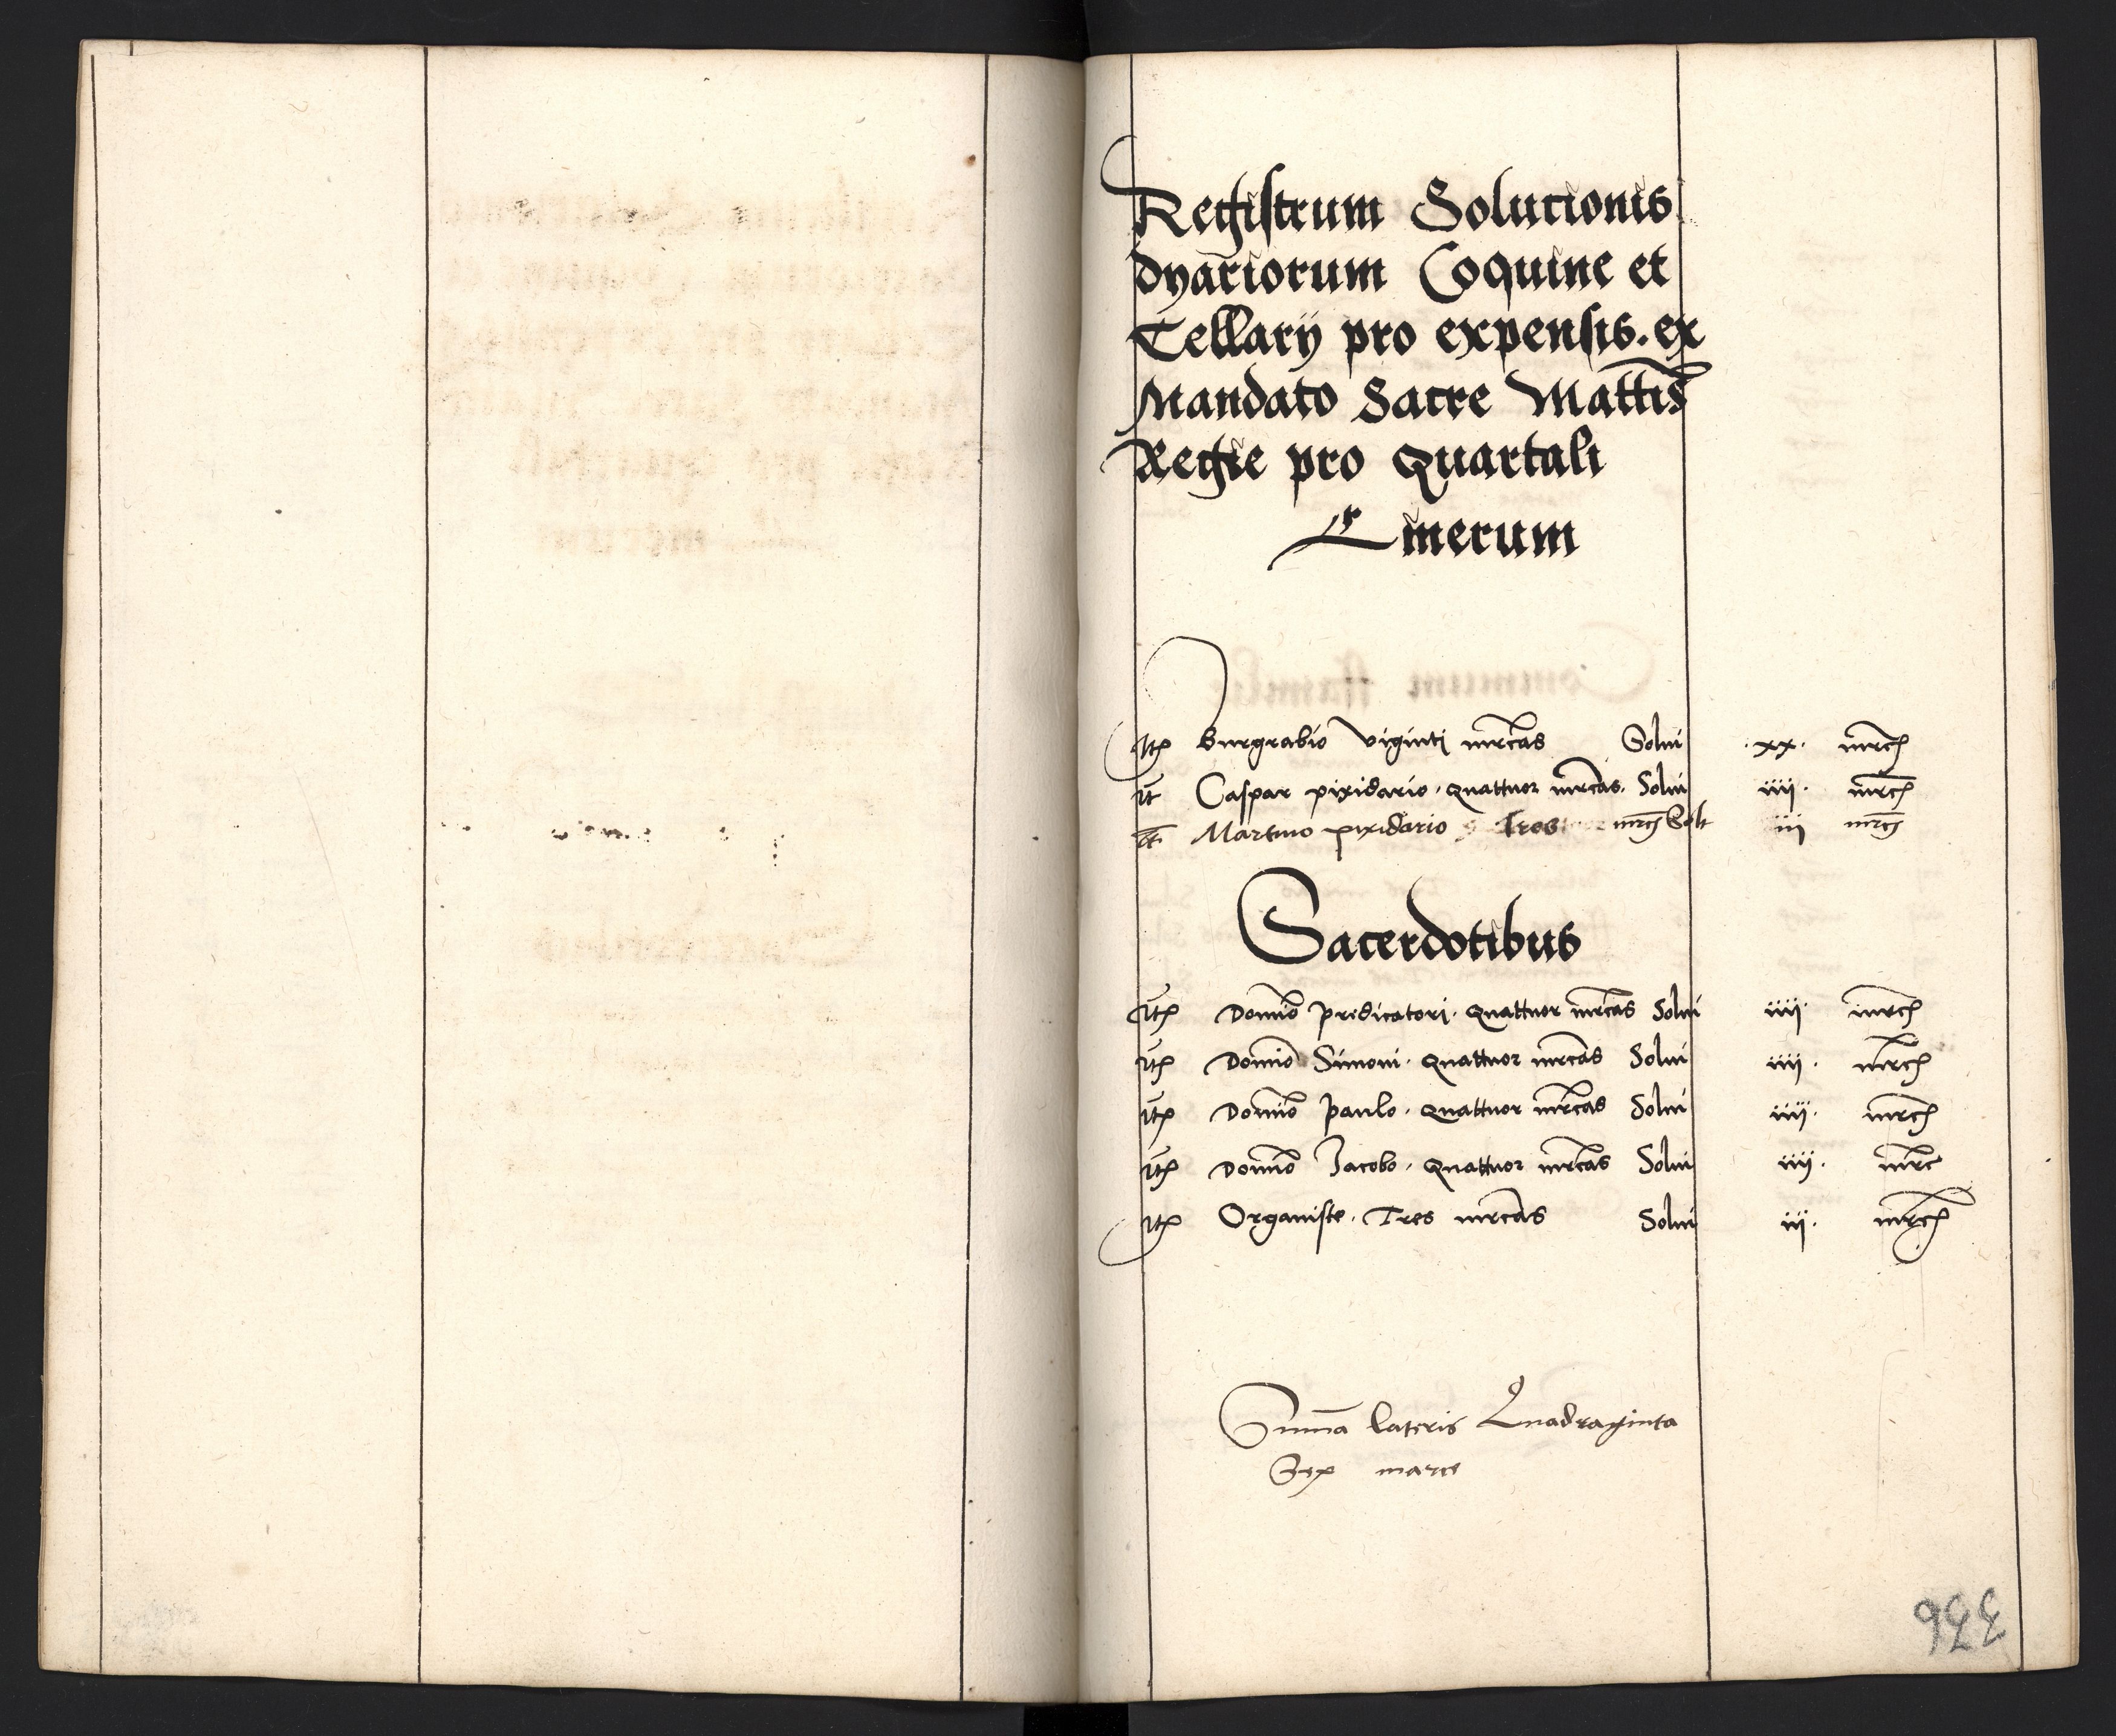 Registrum Solucionis
dyariorum Coquine et
Cellarij pro expensis. ex
Mandato Sacre Mattis
Regie pro quartali
Cinerum
Itz Burgrabio viginti mrcas Solui .xx. mrc
It Caspar pixidario. quattuor mrcas. Solui iiij. mrc
It Martino pixidario Tres mrc Solt iij mrc
Sacerdotibus
Itz Domino predicatori. quattuor mrcas Solui iiij. mrc
Itz Domino Simoni. quattuor mrcas Solui iiij. mrc
Itz Domino paulo. quattuor mrcas Solui iiij. mrc
Itz Domino Jacobo. quattuor mrcas Solui iiij. mrc
Itz Organiste. Tres mrcas Solui iij. mrc
Summa lateris Quadraginta
Sex marce
336